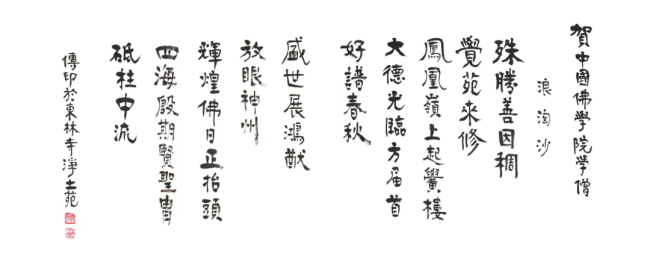 賀中國佛學院學僧
浪淘沙
殊勝善因稠
覺苑來修
鳳凰嶺上起黌樓
大德光臨方届首
好譜春秋
盛世展鴻猷
放眼神州
輝煌佛日正抬頭
四海殷期賢聖胄
砥柱中流
傳印於東林寺淨土苑